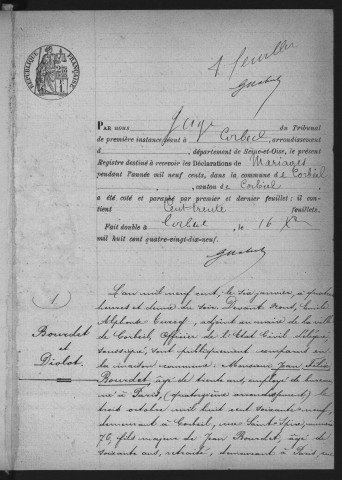 RÉPUBLIQUE FRANÇAISE
1er feuillet
PAR NOUS Juge du Tribunal
de première instance séant à Corbeil, arrondissement
d département de Seine-et-Oise, le présent
Registre destiné à recevoir les Déclarations de Mariages
pendant l'année mil neuf cents, dans la commune de Corbeil,
canton de Corbeil
a été coté et paraphé par premier et dernier feuillet; il con-
tient Cent trente feuillets.
Fait double à Corbeil, le 16 Xbre
mil huit cent quatre-vingt-dix-neuf.
1
Bourdet
et
Diolot
L'an mil neuf cent, le six janvier, à quatre
heures et demie du soir. Devant Nous, Émile
Alphonse, adjoint au maire de la ville
de Corbeil, Officier de l'État Civil délégué,
soussigné, sont publiquement comparus en
la maison commune: Monsieur Jean Félix
Bourdet, âgé de trente ans, employé de bureau
à Paris, (quatorzième arrondissement) le
trois octobre mil huit cent soixante neuf,
demeurant à Corbeil, rue Saint Spire, numéro
70, fils majeur de Jean Bourdet, âgé de
soixante ans, retraité, demeurant à Paris,